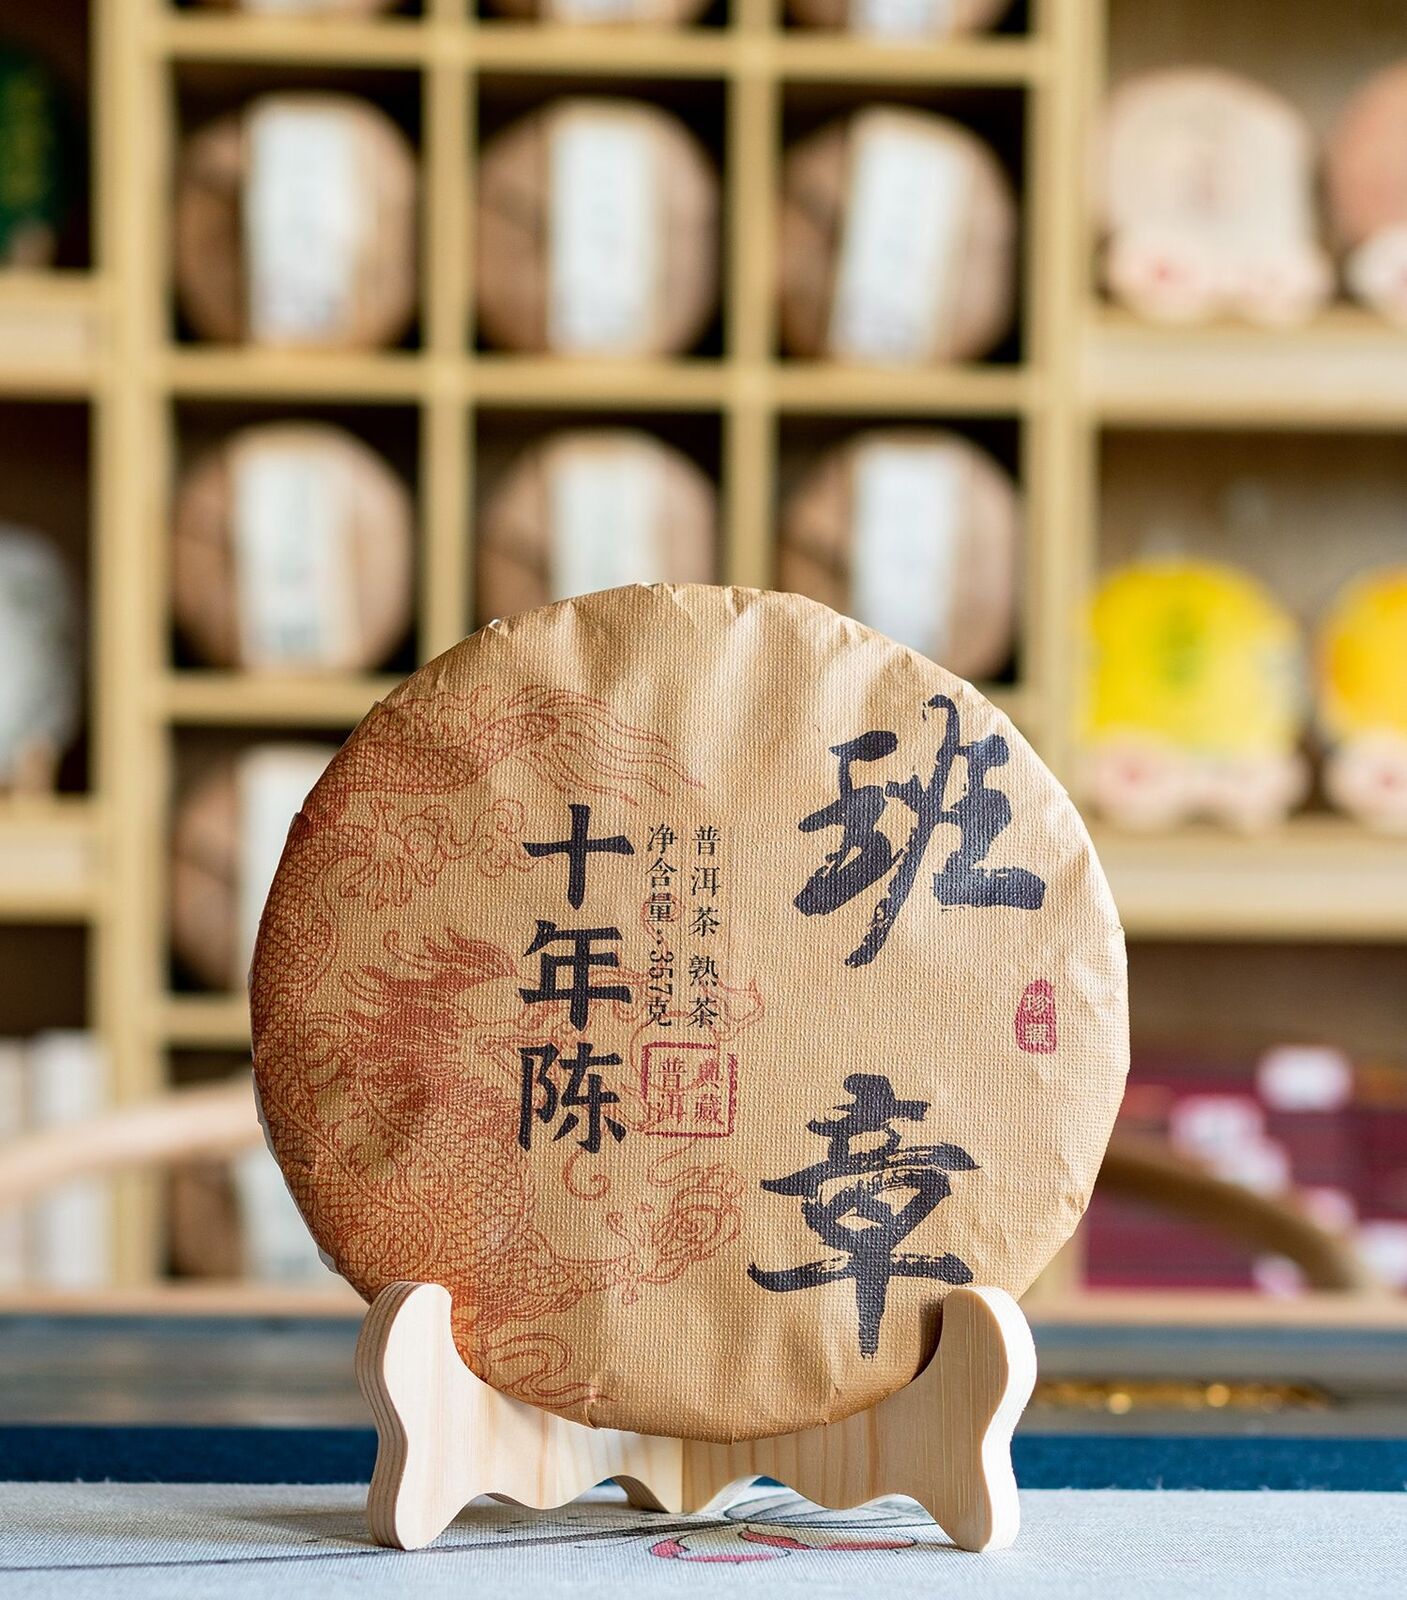 班章
普洱茶 熟茶
净含量:357克
十年陈
典藏
普洱